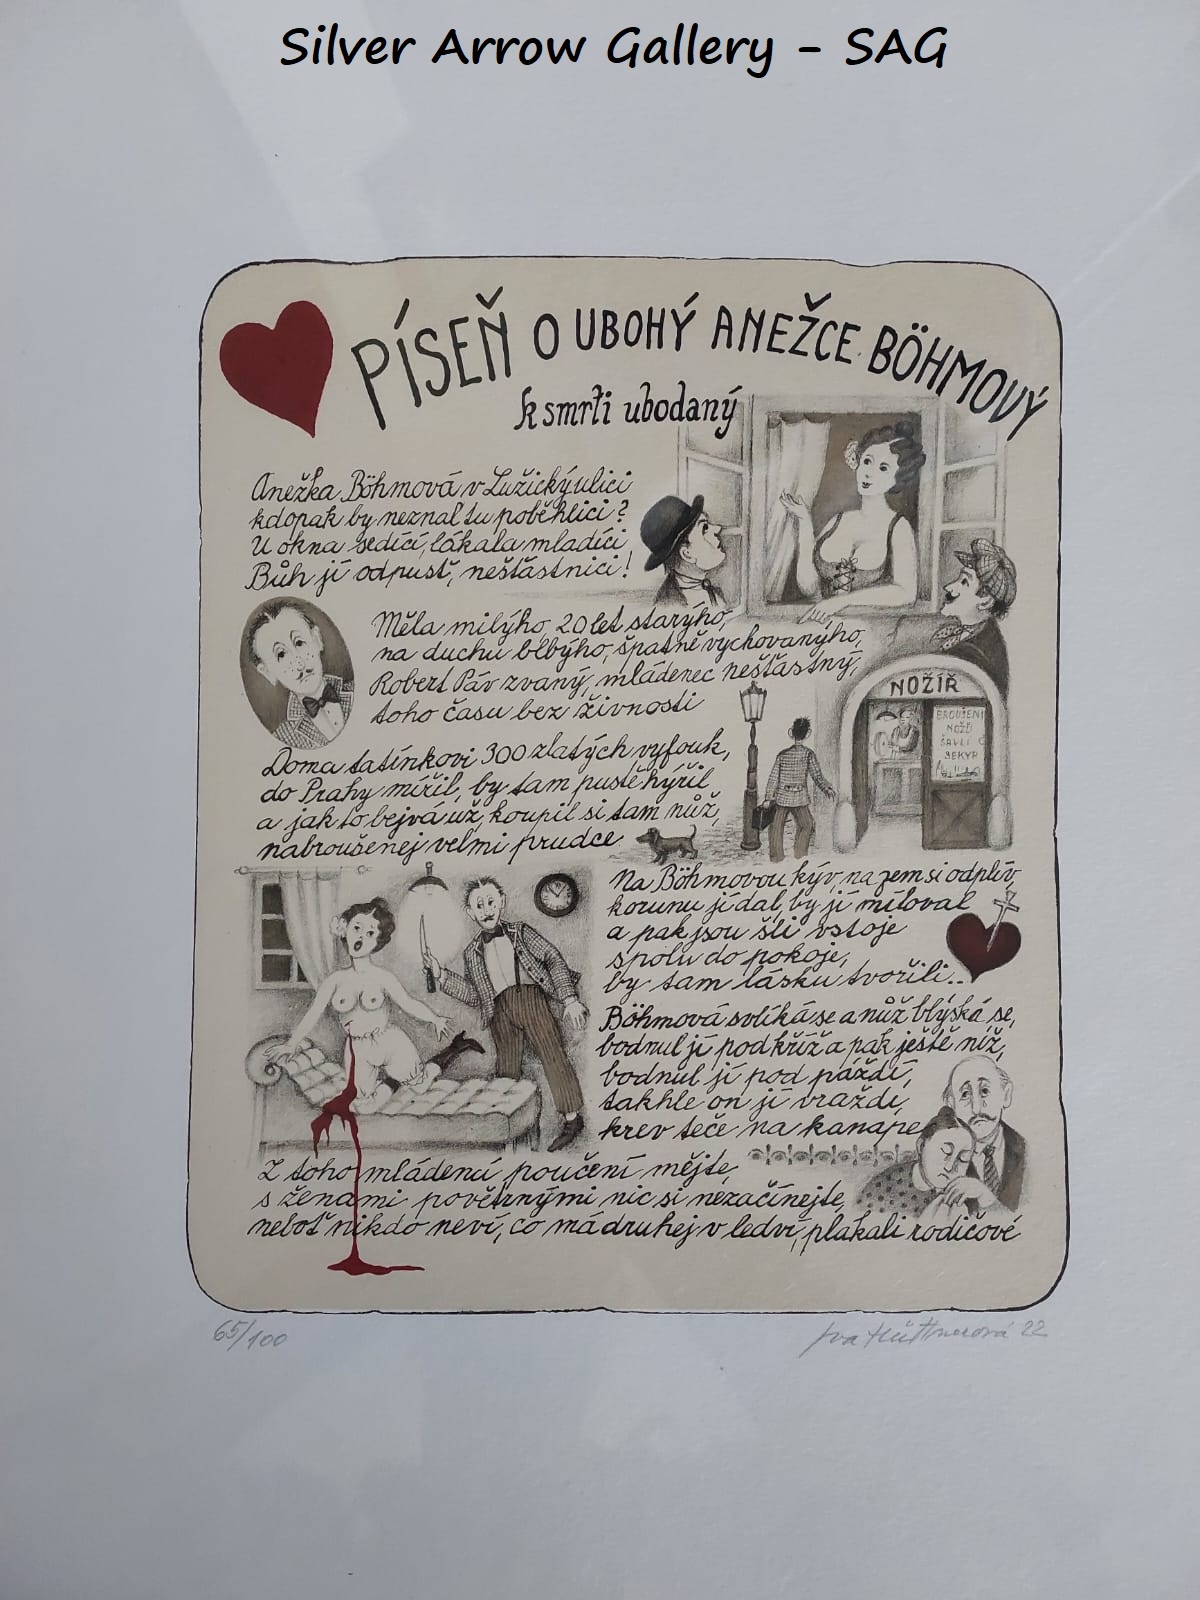 Silver Arrow Gallery - SAG
PÍSEŇ O UBOHÝ ANEŽCE BÖHMOVÝ
k smrti ubodaný
Anežka Böhmová v Lužický ulici
kdopak by neznal tu poběhlici?
U okna sedíci, lákala mladíci
Bůh jí odpusť, nešťastnici!
Měla milýho, 20 let starýho,
na duchu blbýho, špatně vychovanýho,
Robert Páv zvaný, mládenec nešťastný,
toho času bez živnosti
NOŽÍŘ
BROUŠENÍ
NOŽŮ
ŠAVLÍ
SEKYR
Doma tatínkovi 300 zlatých vyfouk,
do Prahy mířil, by tam pustě hýřil
a jak to bejvá už, koupil si tam nůž,
nabroušenej velmi prudce
Na Böhmovou kýv, na zem si odpliv,
korunu jí dal, by jí miloval
a pak jsou šli vstoje
spolu do pokoje,
by tam lásku tvořili..
Böhmová svlíká se a nůž blýská se,
bodnul jí pod kříž a pak ještě níž,
bodnul jí pod páždí,
takhle on jí vraždí,
krev teče na kanape
Z toho mládenci poučení mějte,
s ženami povětrnými nic si nezačínejte,
neboť nikdo neví, co má druhej v ledví, plakali rodičové
65/100
Iva Hüttnerová 22